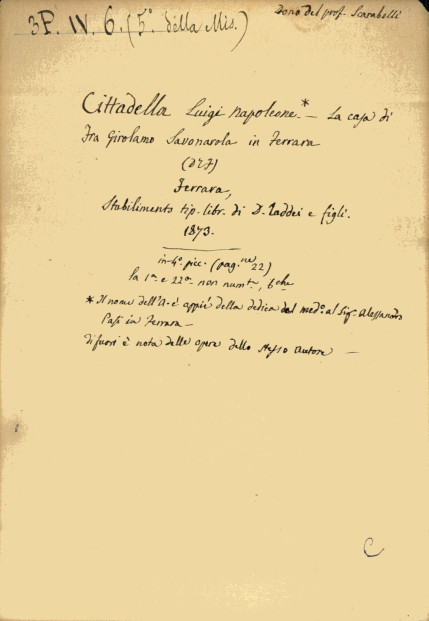 Dono del prof. Scarabelli
3P. IV. 6. (5° della Mis.)
Cittadella Luigi Napoleone.* — La casa di
Fra Girolamo Savonarola in Ferrara
Ferrara,
Stabilimento tip. libr. di D. Taddei e figli.
1873.
in 4° picc. (pag.ne 22)
la 1a e 22a non numte, bche
* Il nome dell'A. è appiè della dedica del medo al Sigr Alessandro
in Ferrara —
di fuori è nota delle opere dello stesso autore —
C